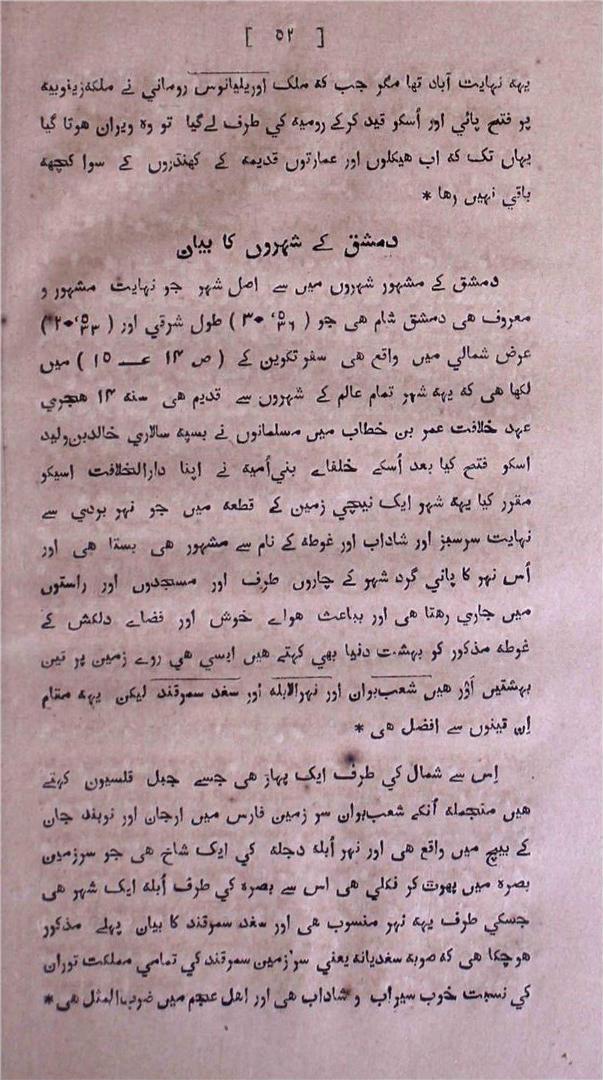 [ ٥٢ ]
یهه نهایت آباد تها مگر جب که ملک اوریلیانوس روماني نے ملکه زینوبیه
پر فتح پائي اور اُسکو قید کرکے رومیه کي طرف لے گیا تو وه ویران هوتا گیا
یهاں تک که اب هیکلوں اور عمارتوں قدیمه کے کهنڈروں کے سوا کچهه
باقي نهیں رها *
دمشق کے شهروں کا بیان
دمشق کے مشهور شهروں میں سے اصل شهر جو نهایت مشهور و
معروف هی دمشق شام هی جو ( ٣٦ْ٥ ٣٠ ) طول شرقي اور ( ٣٣ْ٥ ٢٠ )
عرض شمالي میں واقع هی سفر تکوین کے ( ص ١٤ عــ ١٥ ) میں
لکها هی که یهه شهر تمام عالم کے شهروں سے قدیم هی سنه ١٤ هجري
عهد خلافت عمر بن خطاب میں مسلمانوں نے بسپه سالاري خالدبن ولید
اسکو فتح کیا بعد اُسکے خلفاے بني اُمیه نے اپنا دارالخلافت اسیکو
مقرر کیا یهه شهر ایک نیچي زمین کے قطعه میں جو نهر بردي سے
نهایت سرسبز اور شاداب اور غوطه کے نام سے مشهور هی بستا هی اور
اُس نهر کا پاني گرد شهر کے چاروں طرف اور مسجدوں اور راستوں
میں جاري رهتا هی اور بباعث هواے خوش اور فضاے دلکش کے
غوطه مذکور کو بهشت دنیا بهي کهتے هیں ایسي هي روے زمین پر تین
بهشتیں اَوْر هیں شعب بوان اور نهرالابله اور سغد سمرقند لیکن یهه مقام
اِن تینوں سے افضل هی *
اِس سے شمال کي طرف ایک پهاڑ هی جسے جبل قلسیون کهتے
هیں منجمله اُنکے شعب بوان سر زمین فارس میں ارجان اور نوبند جان
کے بیچ میں واقع هی اور نهر اُبله دجله کي ایک شاخ هی جو سرزمین
بصره میں پهوٹ کر نکلي هی اس سے بصره کي طرف اُبله ایک شهر هی
جسکي طرف یهه نهر منسوب هی اور سغد سمرقند کا بیان پہلے مذکور
هوچکا هی که صوبه سغدیانه یعني سرزمین سمرقند کي تمامي مملکت توران
کي نسبت خوب سیراب و شاداب هی اور اهل عجم میں ضرب المثل هی *